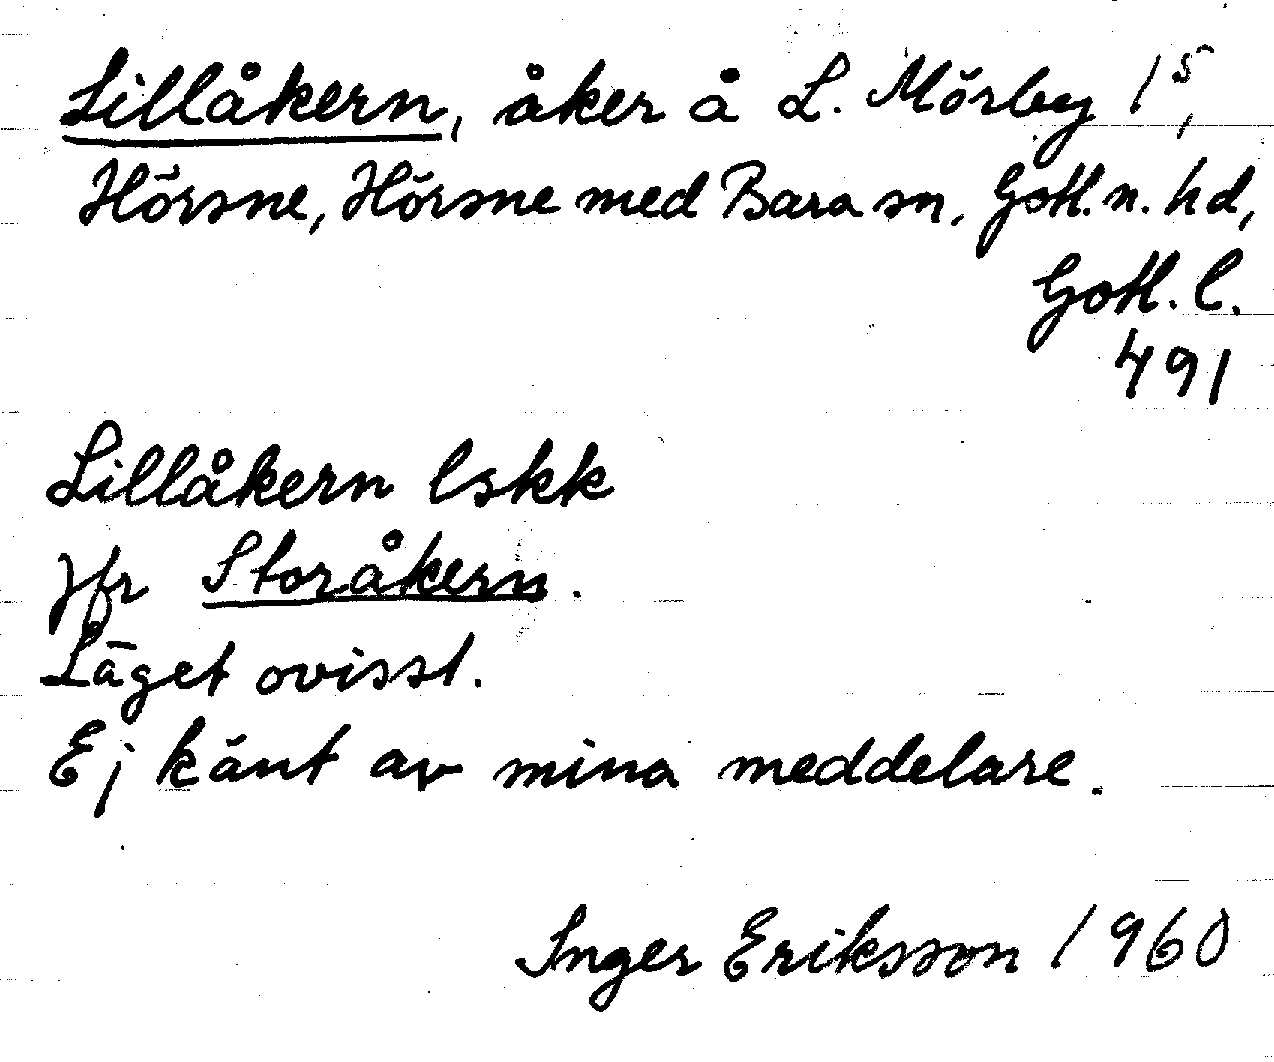 Lillåkern, åker å L. Mörby 1⁵,
Hörsne, Hörsne med Bara sn, Gotl. n. hd,
Gotl. l.
491
Lillåkern lskk
Jfr Storåkern.
Läget ovisst.
Ej känt av mina meddelare.
Inger Eriksson 1960